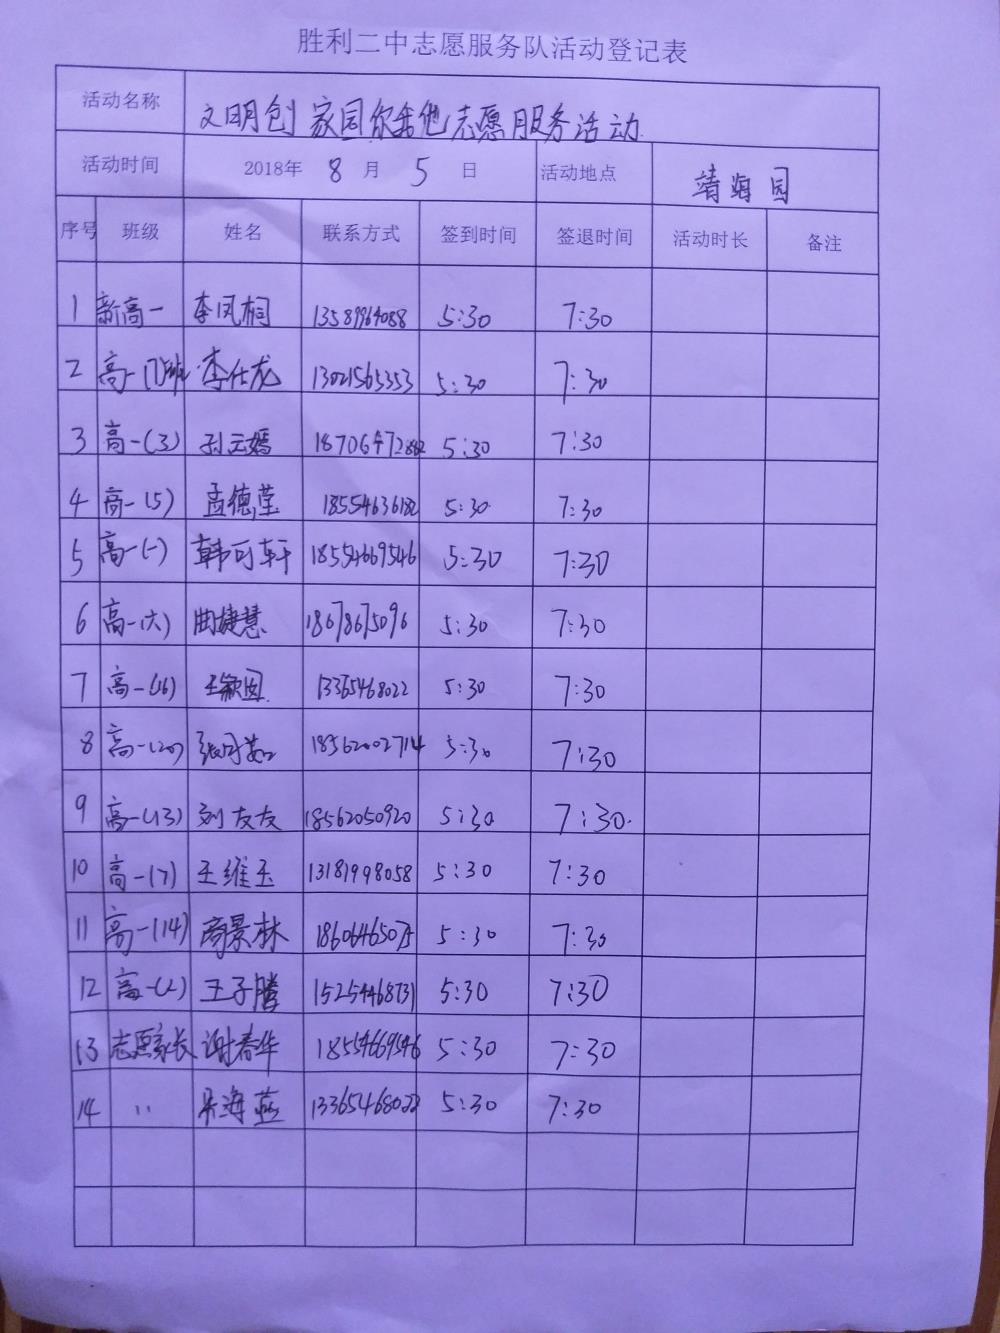 胜利二中志愿服务队活动登记表
活动名称 文明创家园你我他志愿服务活动
活动时间 2018年 8 月 5 日 活动地点 靖海园
序号 班级 姓名 联系方式 签到时间 签退时间 活动时长 备注
1 新高一 李凤桐 13589964088 5:30 7:30
2 高一17班 李仕龙 13021565353 5:30 7:30
3 高一(3) 孙云嫣 18706472882 5:30 7:30
4 高一(5) 孟德莹 18554636182 5:30 7:30
5 高一(一) 韩可轩 18554669546 5:30 7:30
6 高一(六) 曲婕慧 18678675096 5:30 7:30
7 高一(16) 13365468022 5:30 7:30
8 高一(20) 18562002714 5:30 7:30
9 高一(13) 刘友友 18562050920 5:30 7:30
10 高一(7) 王维玉 13181998058 5:30 7:30
11 高一(14) 商景林 5:30 7:30
12 王子腾 15254468731 5:30 7:30
13 志愿家长 谢春华 18554669546 5:30 7:30
14 '' 吴海燕 13365468022 5:30 7:30